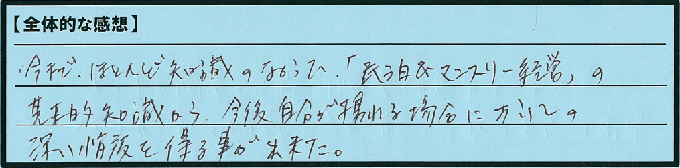 【全体的な感想】
・今まで、ほとんど知識のなかった、「民泊&マンスリー経営」の
基本的知識から、今後自分が携れる場合に
深い情報を得る事が出来た。